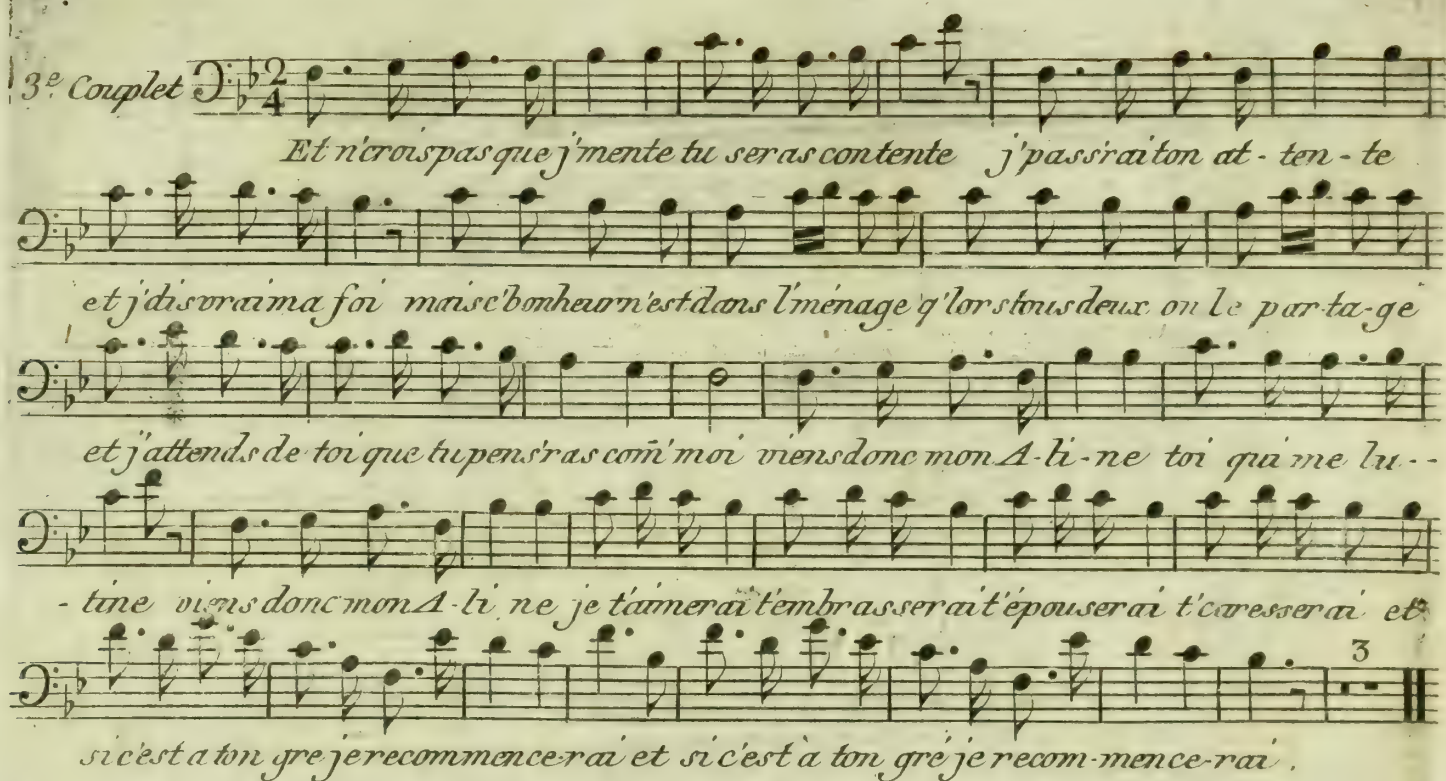 3e. Couplet 2 4
Et n'crois pas que j'mente tu seras contente j'pass'rai ton at - ten - te
et j'dis vrai ma foi mais c'bonheur n'est dans l'ménage q'lors tous deux on le par-ta-ge
et j'attends de toi que tu pens'ras com̃'moi viens donc mon A-li-ne toi qui me lu - -
- tine viens donc mon A-li ne je t'aimerai t'embrasserai t'épouserai t'caresserai et
3
si c'est a ton gre je recommence-rai et si c'est à ton gré je recom-mence-rai.